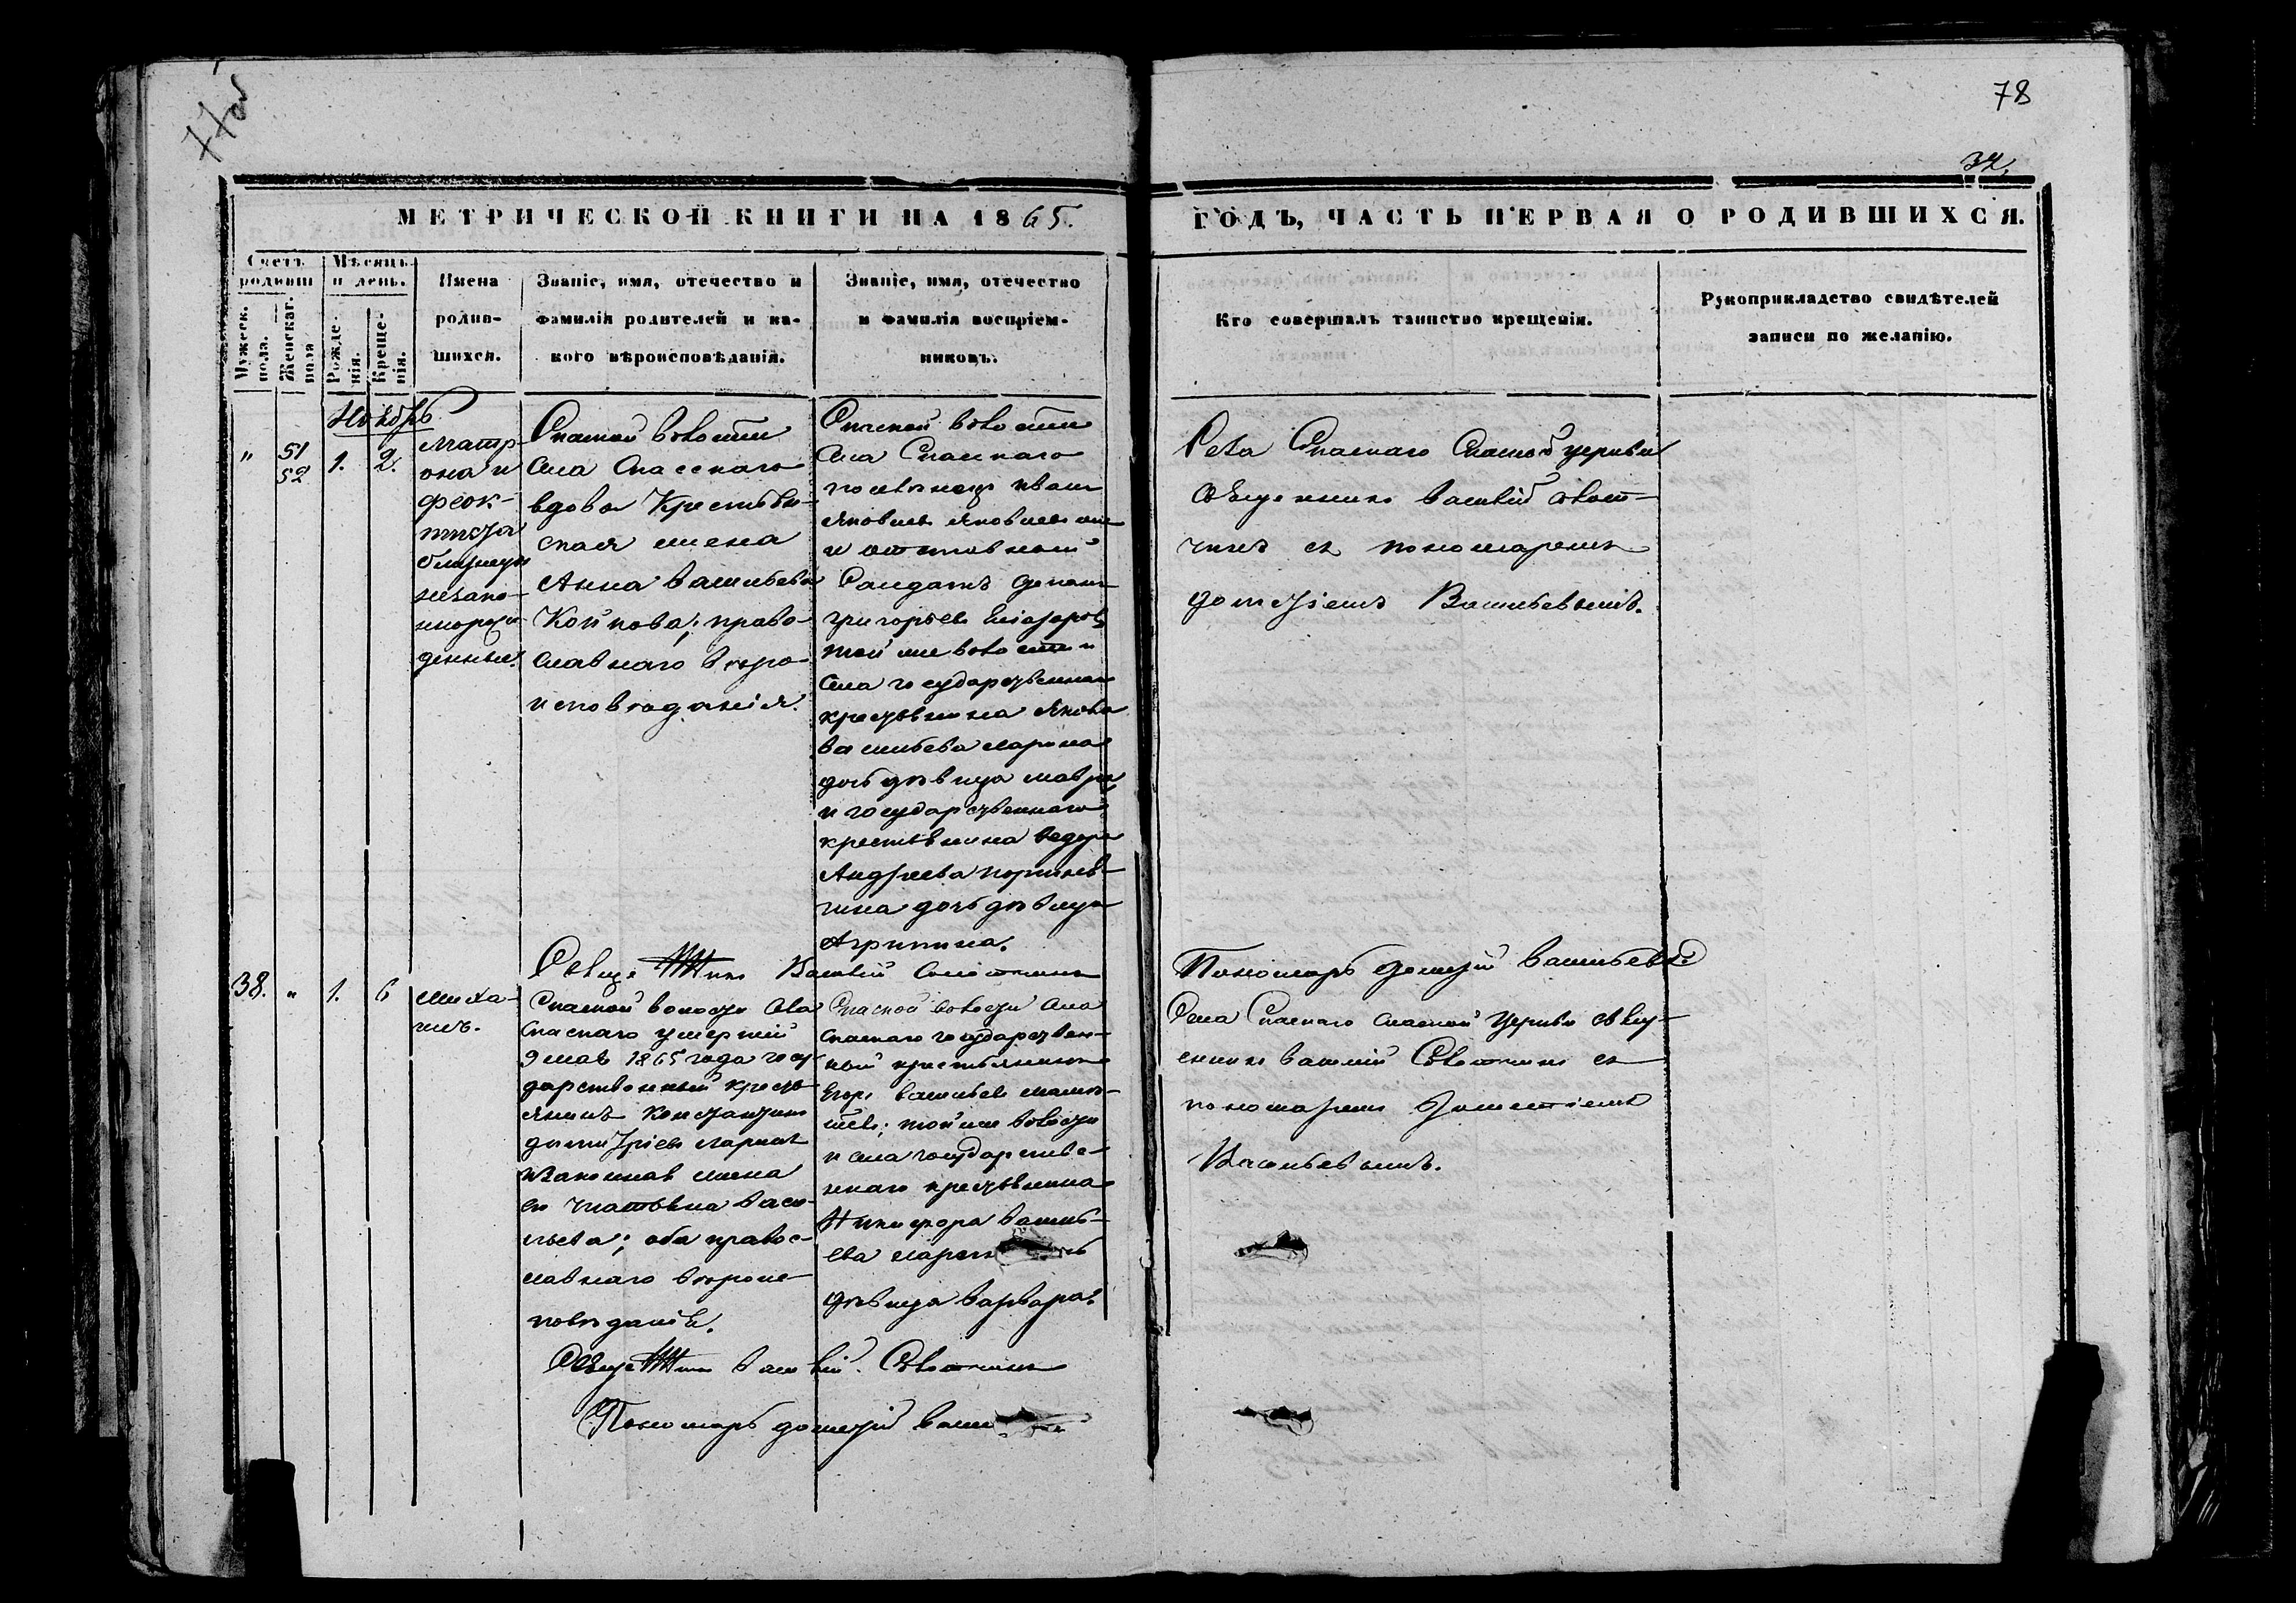 77об
78
32.
МЕТРИЧЕСКОЙ КНИГИ НА 1865. ГОДЪ, ЧАСТЬ ПЕРВАЯ О РОДИВШИХСЯ.
Счетъ родивш
Мужеск. пола.
Женскаг. пола
Мѣсяцъ и день.
Рожде-
нія.
Креще-
нія.
Имена
родив-
шихся.
Званіе, имя, отечество и
фамилія родителей и ка-
кого вѣроисповѣданія.
Званіе, имя, отечество
и фамилія воспріем-
никовъ.
Кто совершалъ таинство крещенія.
Рукоприкладство свидѣтелей
записи по желанію.
Ноябрь
"
51
52
1.
2.
Матр-
она и
Феок-
тиста
близнецы
незако-
норож-
денные.
Спаской волости
села Спасскаго
вдова Крестьян-
ская жена
Анна Васильева
Койнова; право-
славнаго веро-
исповеданія.
Спаской волости
села Спаскаго
поселенецъ Иван
Яковлев Яковлев же
и отставной
Солдатъ
Григорьев Елеазаров
той же волости
села государственнаго
крестьянина Якова
Васильева Ларина
дочь дѣвица Мавра
и государственнаго
крестьянина Федора
Андреева
дочь дѣвица
Агрипина.
Села Спаскаго Спаской церкви
Священникъ Василій
съ пономаремъ
Дометіемъ Васильевымъ.
Священникъ Василій
Пономарь Дометій Васильевъ
38.
"
1.
6
Миха-
илъ.
Спаской волости села
Спаскаго умершій
9 мая 1865 года госу-
дарственный кресть-
янинъ Константин
Димитріев Ларин
Законная жена
его Татьяна Васи-
льева; оба правос-
лавнаго вероис-
поведанія.
Спаской волости села
Спаскаго государствен-
ный крестьянинъ
Егор Васильев
той же волости
и села государстве-
ннаго крестьянина
Никифора Василь-
ева
дѣвица Варвара.
Села Спаскаго Спаской Церкви Свящ-
енникъ Василій съ
пономаремъ Дометіемъ
Васильевымъ.
Священникъ Василій
Пономарь Дометій